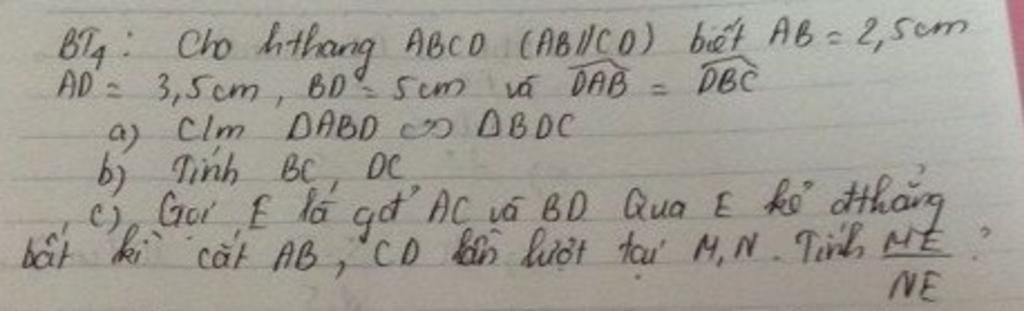 BT4: Cho hthang ABCD (AB//CD) biết AB = 2,5cm
AD = 3,5cm, BD = 5cm và DAB = DBC
a) C/m ΔABD ∽ ΔBDC
b) Tính BC, DC
c), Gọi E là gđ AC và BD Qua E kẻ đthẳng
bất kì cắt AB, CD lần lượt tại M, N. Tính ME/NE ?